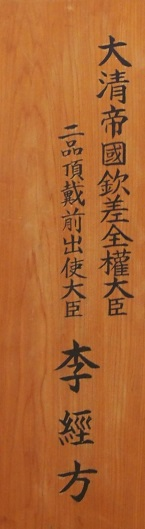 大清帝國欽差全權大臣
二品頂戴前出使大臣
李經方